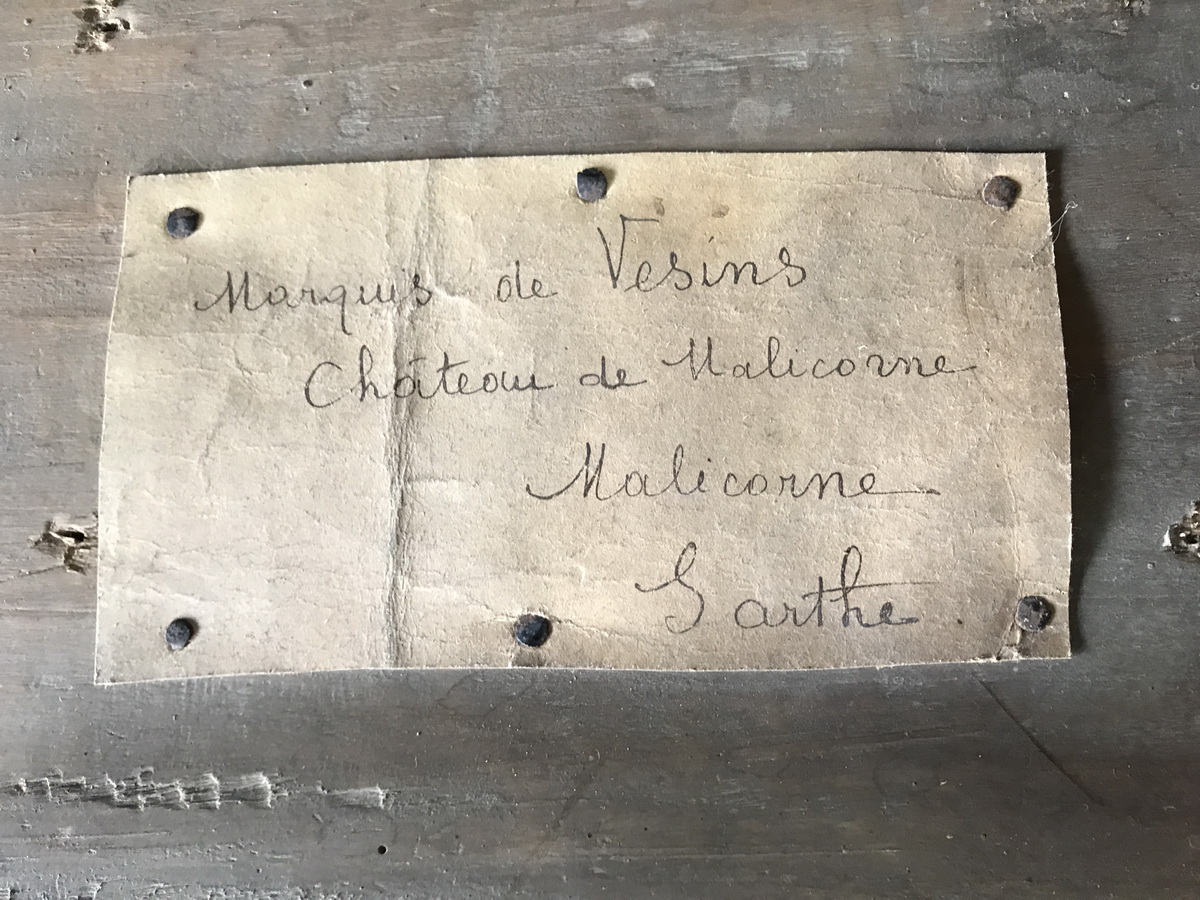 Marquis de Vesins
Château de Malicorne
Malicorne
Sarthe.